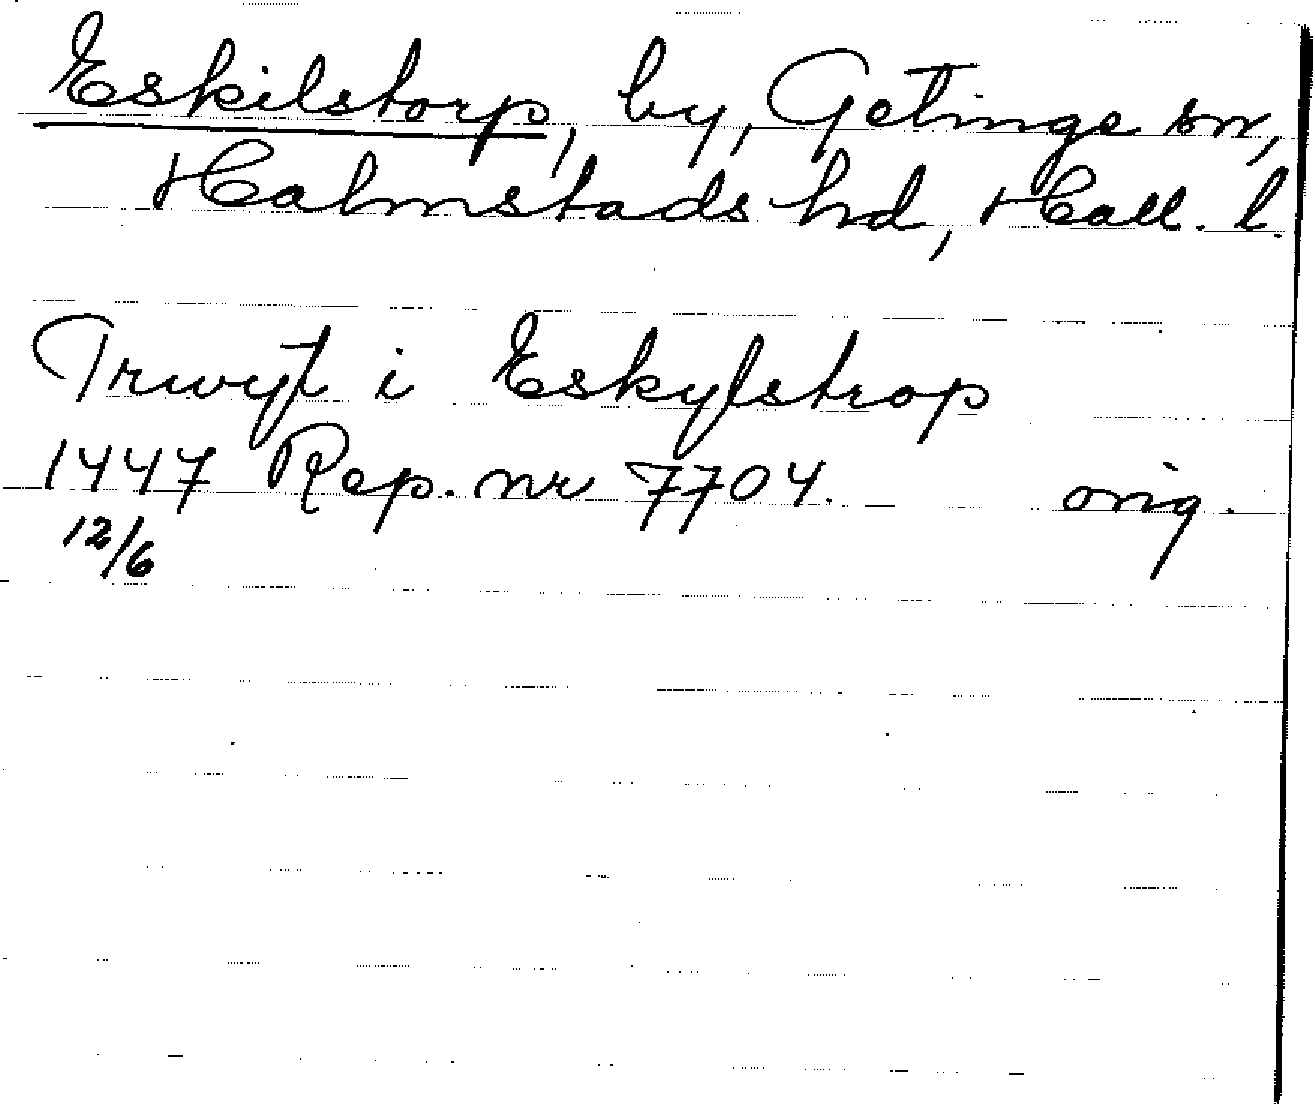 Eskilstorp, by, Getinge sn,
Halmstads hd, Hall. l.
Truyt i Eskylstrop
1447 Rep. nr 7704. orig.
12/6